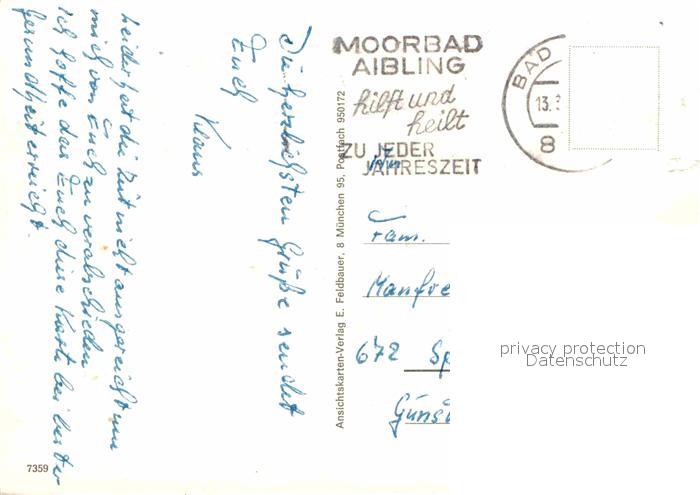 Leider hat die Zeit nicht ausgereicht um
mich von Euch zu verabschieden
ich hoffe das Euch diese Karte bei bester
Gesundheit erreicht.
Die herzlichsten Grüße sendet
Euch
Klaus
7359
Ansichtskarten-Verlag E. Feldbauer, 8 München 95, Postfach 950172
MOORBAD
AIBLING
hilft und
heilt
ZU JEDER
JAHRESZEIT
BAD
13.
8
An
Fam.
Manfre
672 Sp
Günst
privacy protection
Datenschutz